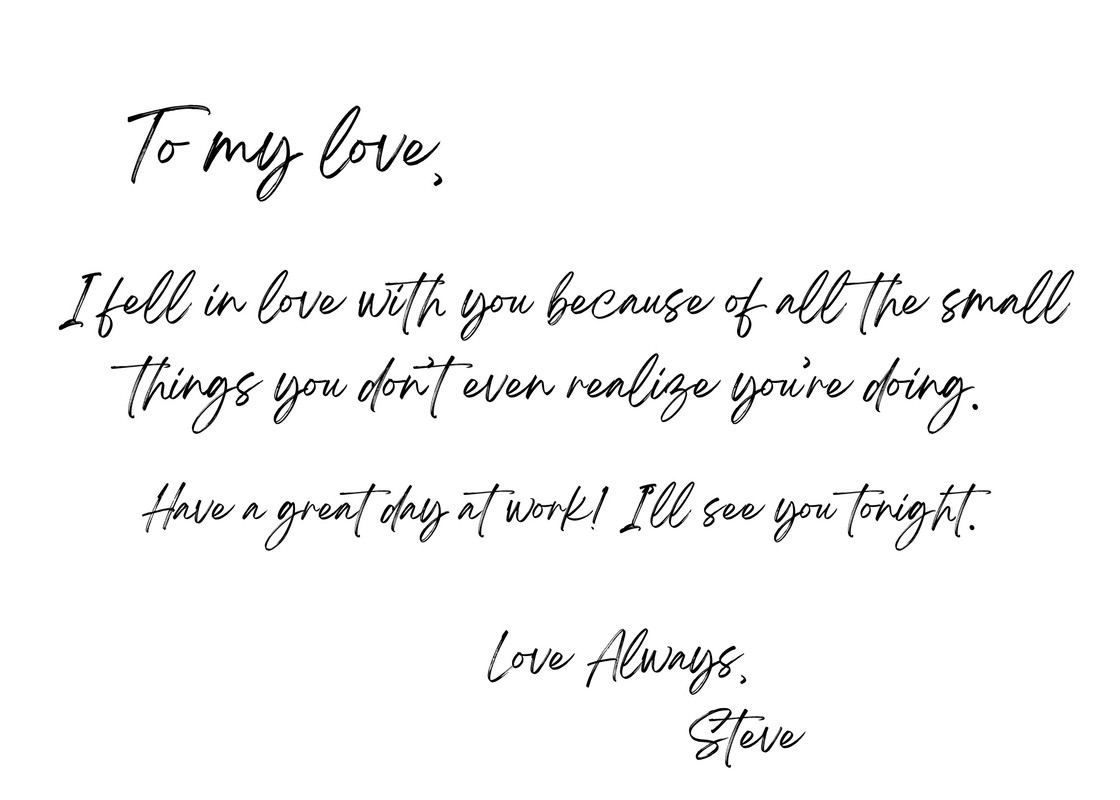 To my love,
I fell in love with you because of all the small
things you don't even realize you're doing.
Have a great day at work! I'll see you tonight.
Love Always,
Steve